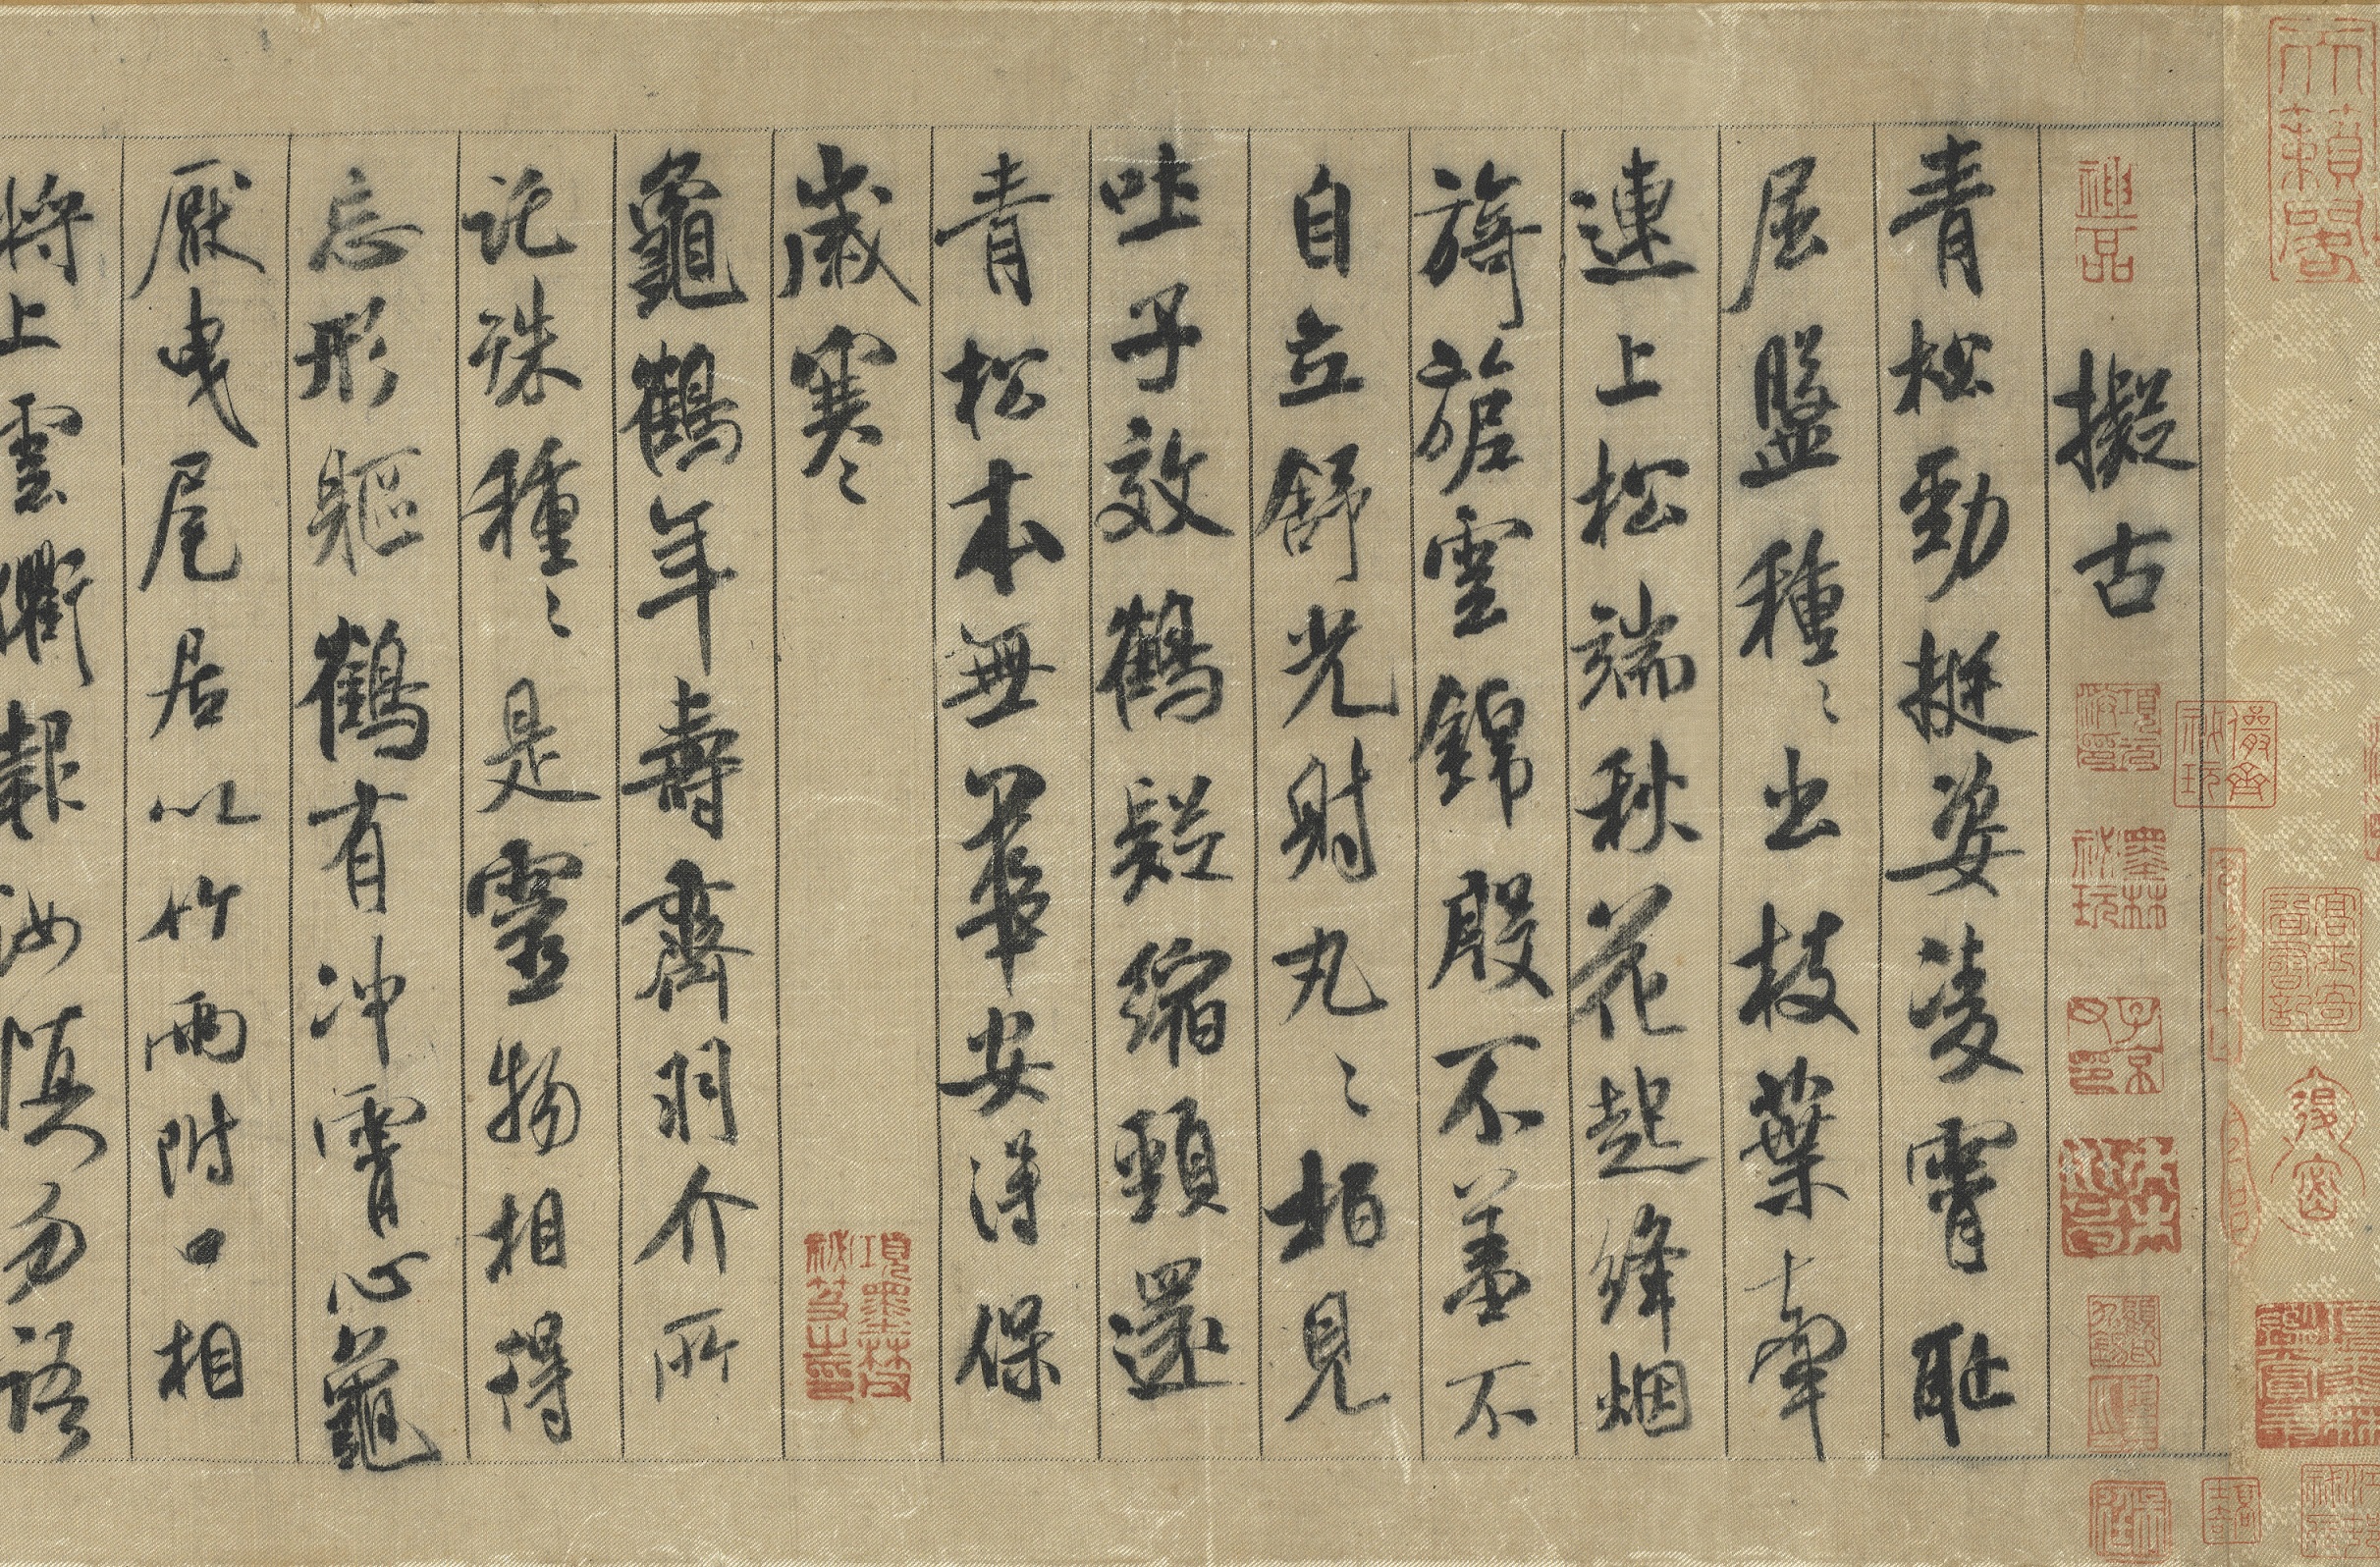 擬古
青松勁挺姿凌霄恥
屈盤種々出枝葉牽
連上松端秋花起絳烟
旖旎雲錦殷不羞不
自立舒光射丸々柏見
吐子效鶴疑縮頸還
青松本無華安得保
歲寒々
龜鶴年壽齊羽介所
託殊種々是靈物相得
忘形軀鶴有沖霄心龜
厭曳尾居以竹兩附口相
將上雲衢報汝慎勿語